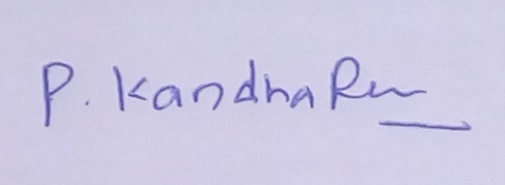 P. Kandha